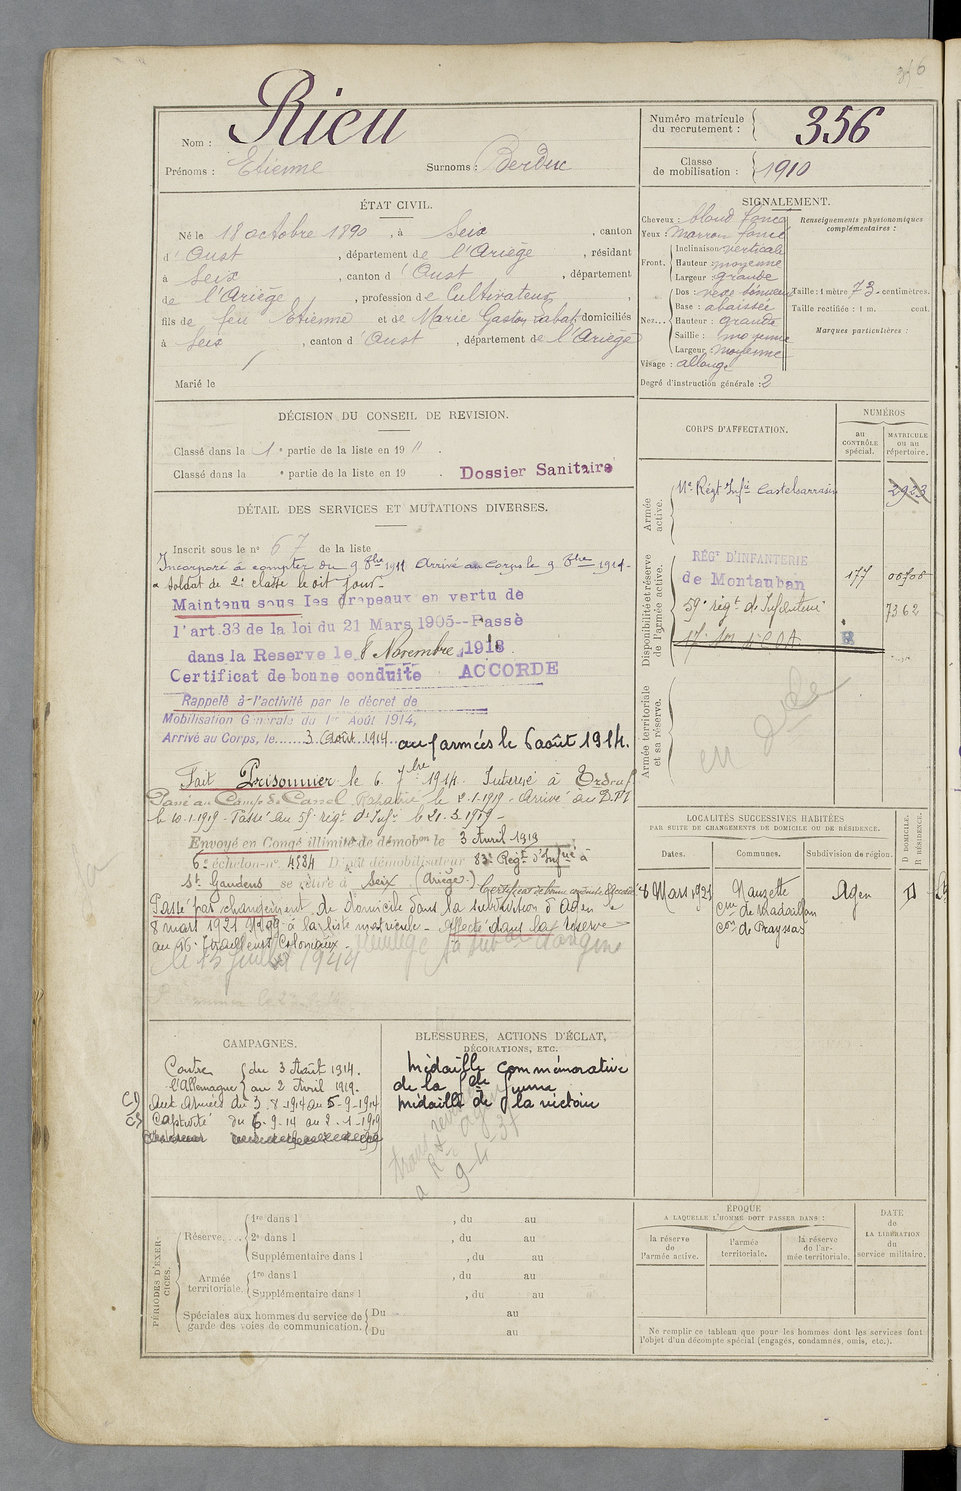 356
Nom : Rieu
Prénoms : Etienne Surnoms : Berduc
Numéro matricule du recrutement : 356
Classe de mobilisation : 1910
ÉTAT CIVIL.
Né le 18 octobre 1890, à Seix, canton
d'Oust, département de l'Ariège, résidant
à Seix, canton d'Oust, département
de l'Ariège, profession de Cultivateur,
fils de feu Etienne et de Marie Gaston Labat, domiciliés
à Seix, canton d'Oust, département de l'Ariège
Marié le
SIGNALEMENT.
Cheveux : blond foncé
Yeux : Marron foncé
Front. Inclinaison verticale
Hauteur : moyenne
Largeur : grande
Nez... Dos : rect. sinueux
Base : abaissée
Hauteur : grande
Saillie : moyenne
Largeur moyenne
Visage : allongé
Degré d'instruction générale : 2
Renseignements physionomiques complémentaires :
Taille : 1 mètre 73 centimètres.
Taille rectifiée : 1 m. cent.
Marques particulières :
DÉCISION DU CONSEIL DE REVISION.
Classé dans la 1e partie de la liste en 1911.
Classé dans la e partie de la liste en 19 .
Dossier Sanitaire
DÉTAIL DES SERVICES ET MUTATIONS DIVERSES.
Inscrit sous le n° 67 de la liste
Incorporé à compter du 9 8bre 1911 Arrivé au corps le 9 8bre 1911
& soldat de 2e classe le dit jour
Maintenu sous les drapeaux en vertu de
l'art. 33 de la loi du 21 Mars 1905--Passé
dans la Reserve le 8 Novembre 1913
Certificat de bonne conduite ACCORDÉ
Rappelé à l'activité par le décret de
Mobilisation Générale du 1er Août 1914,
Arrivé au Corps, le 3 Août 1914 aux armées le 6 août 1914.
Fait Prisonnier le 6 7bre 1914. Interné à
Passé au Camp de Cassel Rapatrié le 2-1-1919 - Arrivé au D.
le 10-1-1919 - Passé au 59e régt d'Infie le 21-3-1919 -
Envoyé en Congé illimité de démobon le 3 Avril 1919
6e échelon-n° 4584 Dépôt démobilisateur 83e Régt d'Infie à
St Gaudens se retire à Seix (Ariège.) Certificat de bonne conduite Accordé
Passé par changement de domicile dans la subdivision d'Agen le
8 mars 1921 à la liste matricule - Affecté dans la réserve
au 16e Tirailleurs Coloniaux -
le 15 juillet 1944
CORPS D'AFFECTATION.
NUMÉROS
au CONTRÔLE spécial.
MATRICULE ou au répertoire.
Armée active.
11e Régt Infie Castelsarrasin 2923
Disponibilité et réserve de l'armée active.
RÉGt D'INFANTERIE
de Montauban 177
59e régt d'Infanterie 7362
Armée territoriale et sa réserve.
LOCALITÉS SUCCESSIVES HABITÉES
PAR SUITE DE CHANGEMENTS DE DOMICILE OU DE RÉSIDENCE.
Dates. Communes. Subdivision de région. D DOMICILE. R RÉSIDENCE.
8 Mars 1921 Nauzette Agen D
Cne de Madaillan
Con de Prayssas
CAMPAGNES.
Contre l'Allemagne du 3 Août 1914.
au 2 Avril 1919.
C) Aux Armées du 3-8-1914 au 5-9-1914
C) Captivité du 6-9-14 au 2-1-1919
BLESSURES, ACTIONS D'ÉCLAT,
DÉCORATIONS, ETC.
Médaille commémorative
de la gde guerre
Médaille de la victoire
9-4-37
PÉRIODES D'EXERCICES.
Réserve.... 1re dans l , du au
2e dans l , du au
Supplémentaire dans l , du au
Armée territoriale. 1re dans l , du au
Supplémentaire dans l , du au
Spéciales aux hommes du service de garde des voies de communication. Du au
Du au
ÉPOQUE
A LAQUELLE L'HOMME DOIT PASSER DANS :
la réserve de l'armée active.
l'armée territoriale.
la réserve de l'armée territoriale.
DATE de LA LIBÉRATION du service militaire.
Ne remplir ce tableau que pour les hommes dont les services font
l'objet d'un décompte spécial (engagés, condamnés, omis, etc.).